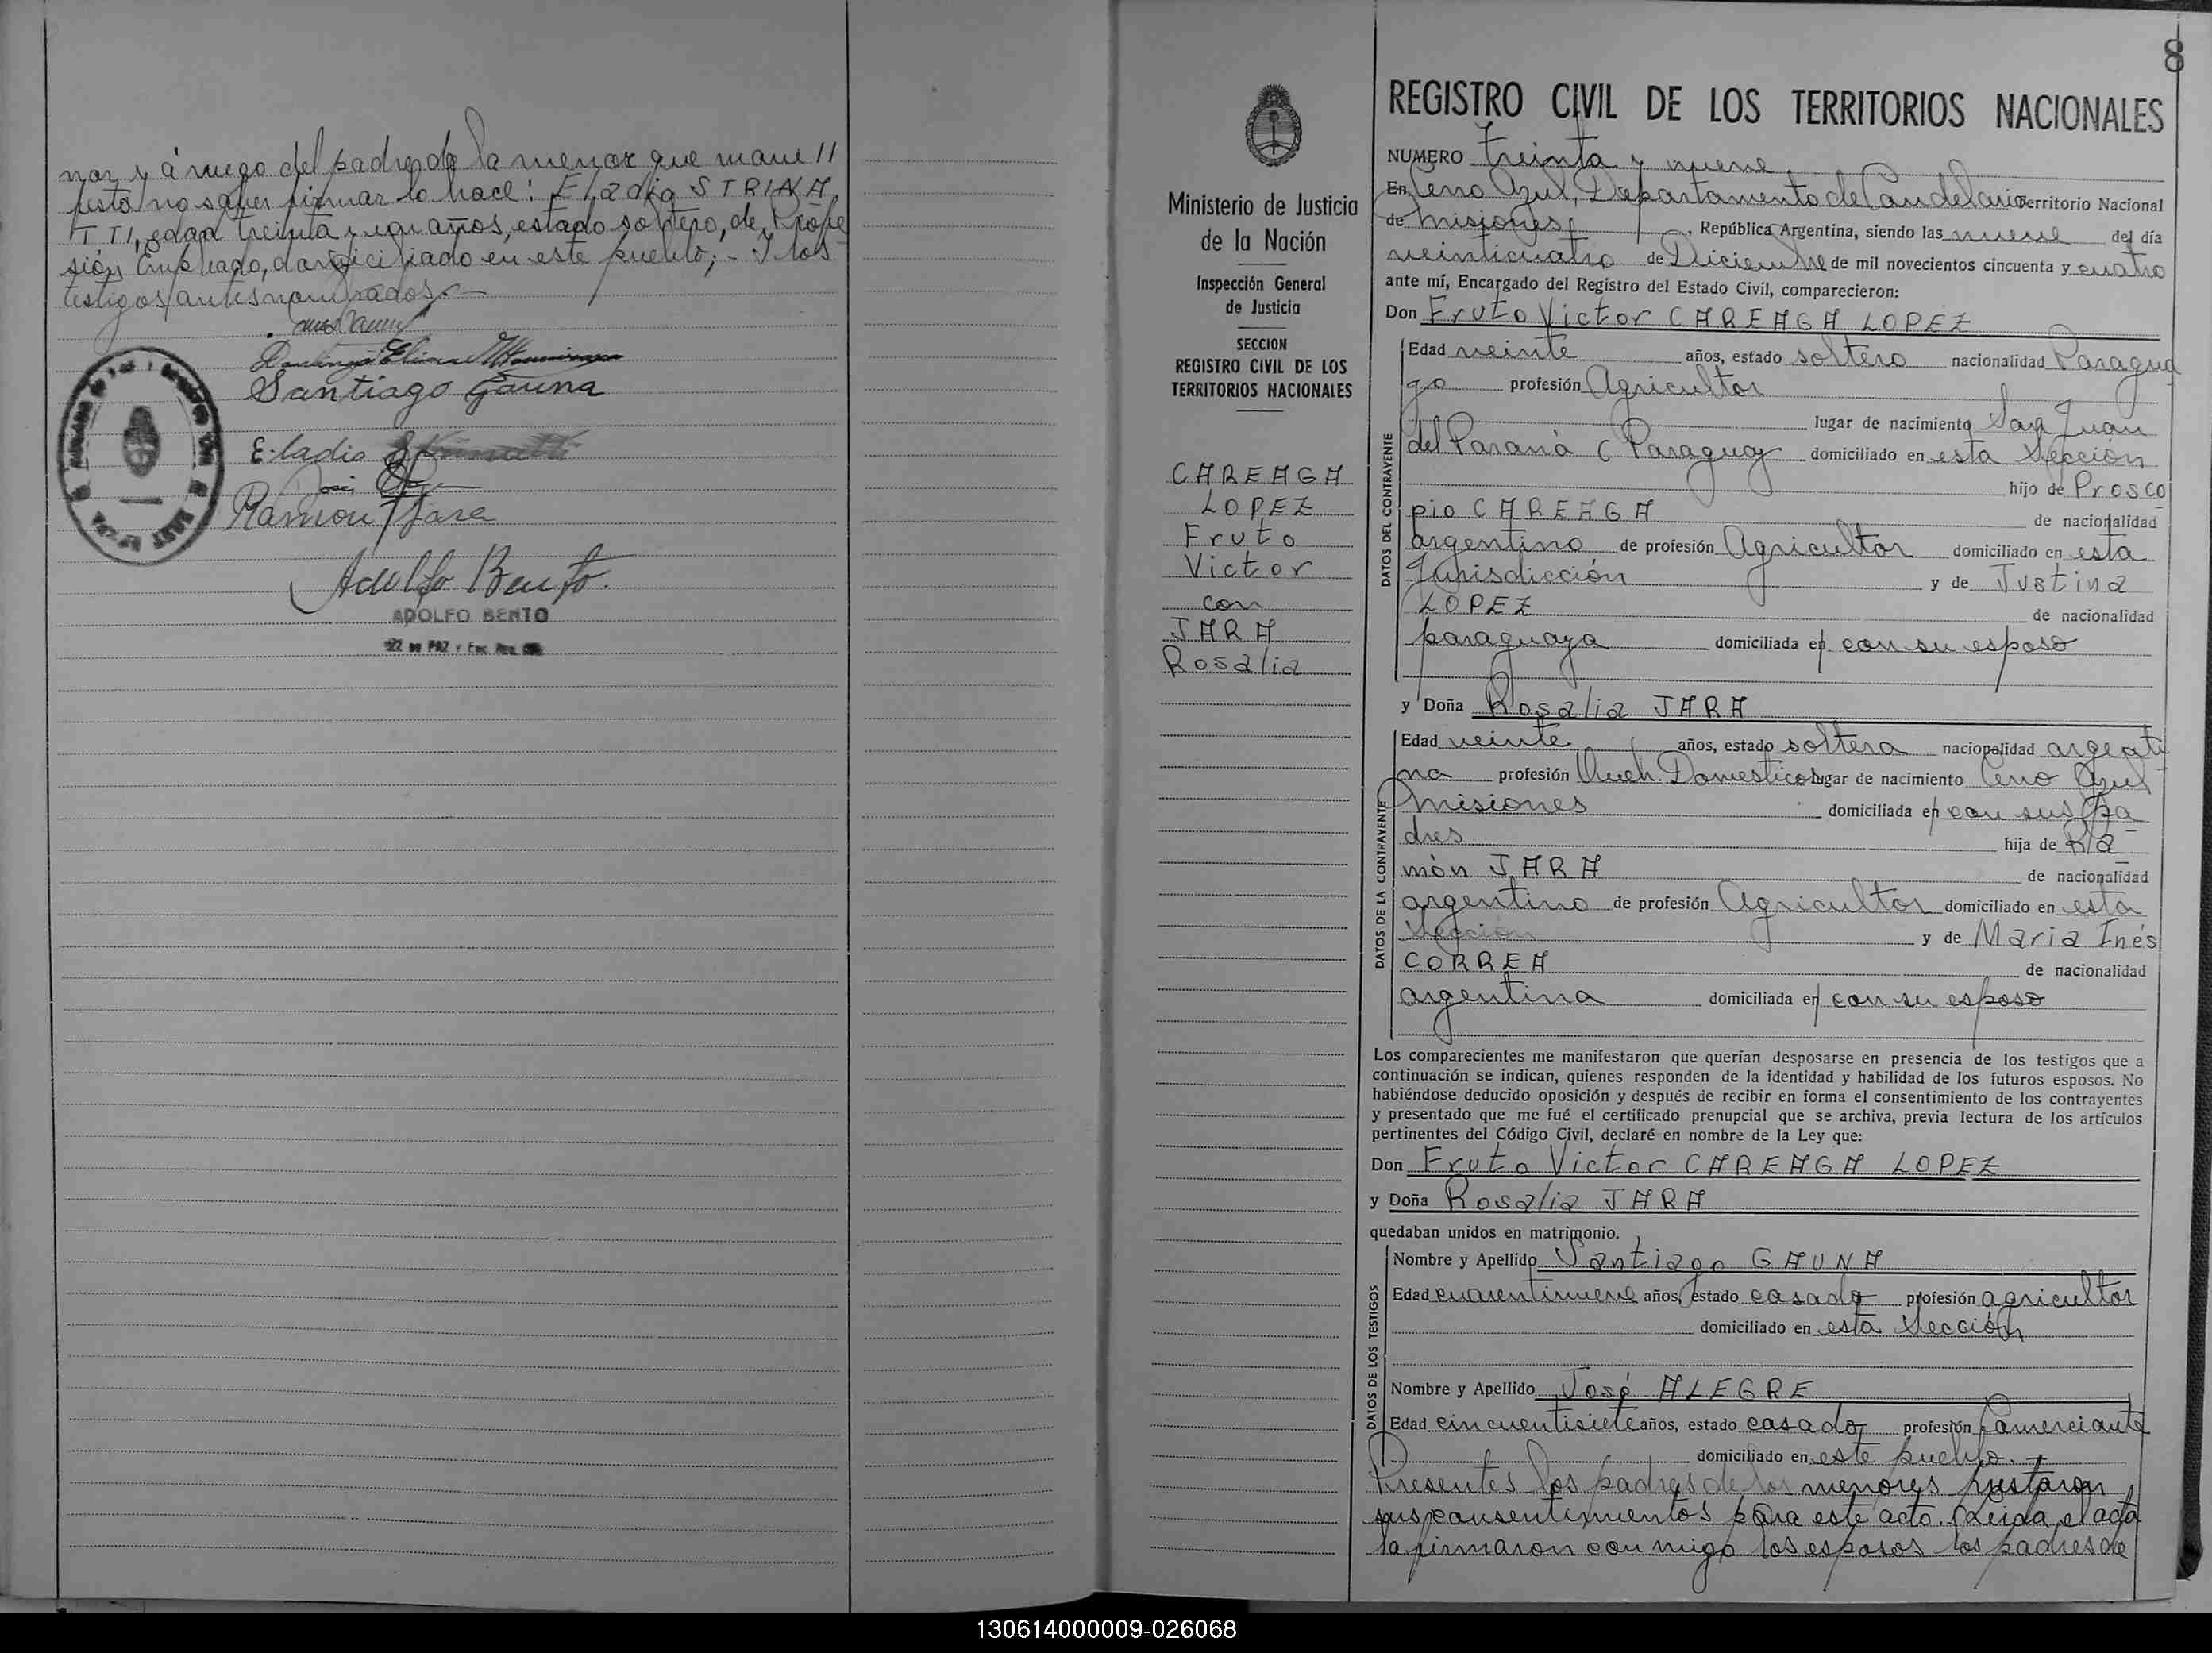 nor y á ruego del padre de la menor que mani//
festó no saber firmar lo hace: Eladio STRINA
TTI, edad treinta y un años, estado soltero, de Profe
sión Empleado, domiciliado en este pueblo; - Y los
testigos antes nombrados.-
Santiago Gauna
Eladio
José
Ramon Jara
Adolfo Bento.
ADOLFO BENTO
DE PAZ Y Enc. Reg.
8
REGISTRO CIVIL DE LOS TERRITORIOS NACIONALES
NUMERO treinta y nueve
En Cerro Azul, Departamento de Candelaria Territorio Nacional
de Misiones, República Argentina, siendo las nueve del día
veinticuatro de Diciembre de mil novecientos cincuenta y cuatro
ante mí, Encargado del Registro del Estado Civil, comparecieron:
Don Fruto Victor CAREAGA LOPEZ
Edad veinte años, estado soltero nacionalidad Paragua
yo profesión Agricultor
lugar de nacimiento San Juan
del Paraná (Paraguay domiciliado en esta Sección
hijo de Prosco
pio CAREAGA de nacionalidad
argentino de profesión Agricultor domiciliado en esta
Jurisdicción y de Justina
LOPEZ de nacionalidad
paraguaya domiciliada en con su esposo
DATOS DEL CONTRAYENTE
y Doña Rosalia JARA
Edad veinte años, estado soltera nacionalidad argenti
na profesión Queh. Domesticos lugar de nacimiento Cerro Azul
Misiones domiciliada en con sus pa
dres hija de Ra
món JARA de nacionalidad
argentino de profesión Agricultor domiciliado en esta
Sección y de Maria Inés
CORREA de nacionalidad
argentina domiciliada en con su esposo
DATOS DE LA CONTRAYENTE
Los comparecientes me manifestaron que querían desposarse en presencia de los testigos que a
continuación se indican, quienes responden de la identidad y habilidad de los futuros esposos. No
habiéndose deducido oposición y después de recibir en forma el consentimiento de los contrayentes
y presentado que me fué el certificado prenupcial que se archiva, previa lectura de los artículos
pertinentes del Código Civil, declaré en nombre de la Ley que:
Don Fruto Victor CAREAGA LOPEZ
y Doña Rosalia JARA
quedaban unidos en matrimonio.
Nombre y Apellido Santiago GAUNA
Edad cuarentinueve años, estado casado profesión agricultor
domiciliado en esta Sección
Nombre y Apellido José ALEGRE
Edad cincuentisiete años, estado casado profesión Comerciante
domiciliado en este pueblo.-
DATOS DE LOS TESTIGOS
Presentes los padres de los menores prestaron
sus consentimientos para este acto. Leida el acta
la firmaron con migo los esposos los padres de
Ministerio de Justicia
de la Nación
Inspección General
de Justicia
SECCION
REGISTRO CIVIL DE LOS
TERRITORIOS NACIONALES
CAREAGA
LOPEZ
Fruto
Victor
con
JARA
Rosalia
130614000009-026068